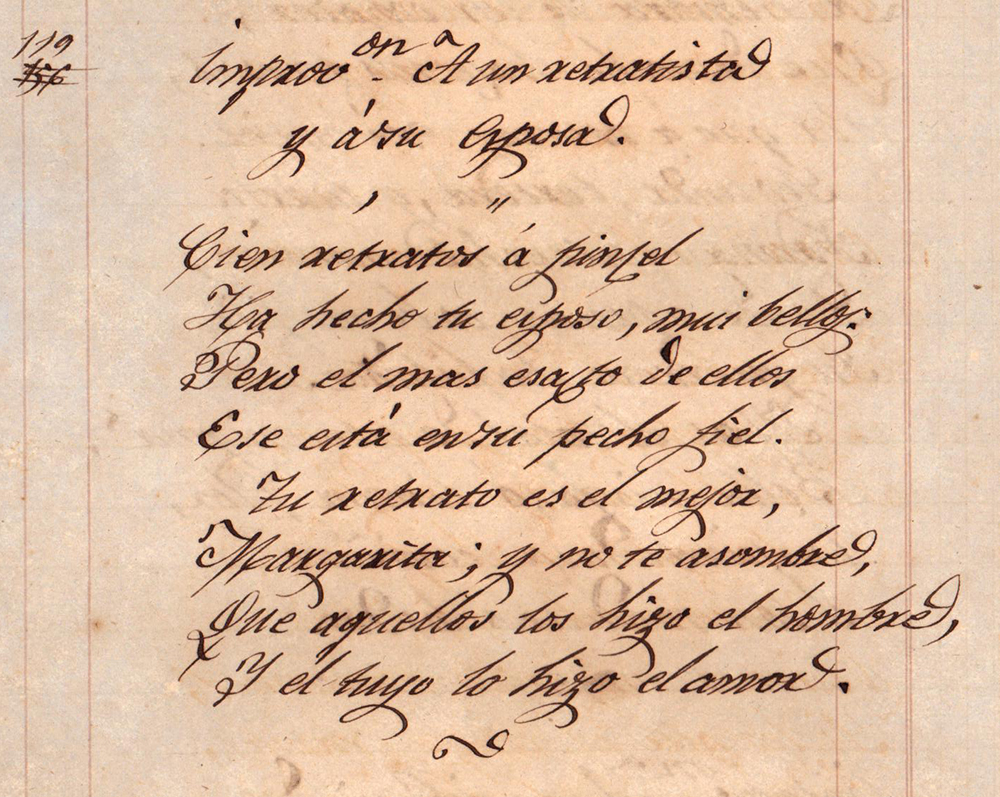 119
156
Improvon. A un retratista
y á su esposa.
Cien retratos á pincel
Ha hecho tu esposo, mui bellos:
Pero el mas esacto de ellos
Ese está en su pecho fiel.
Tu retrato es el mejor,
Margarita; y no te asombre,
Que aquellos los hizo el hombre,
Y el tuyo lo hizo el amor.